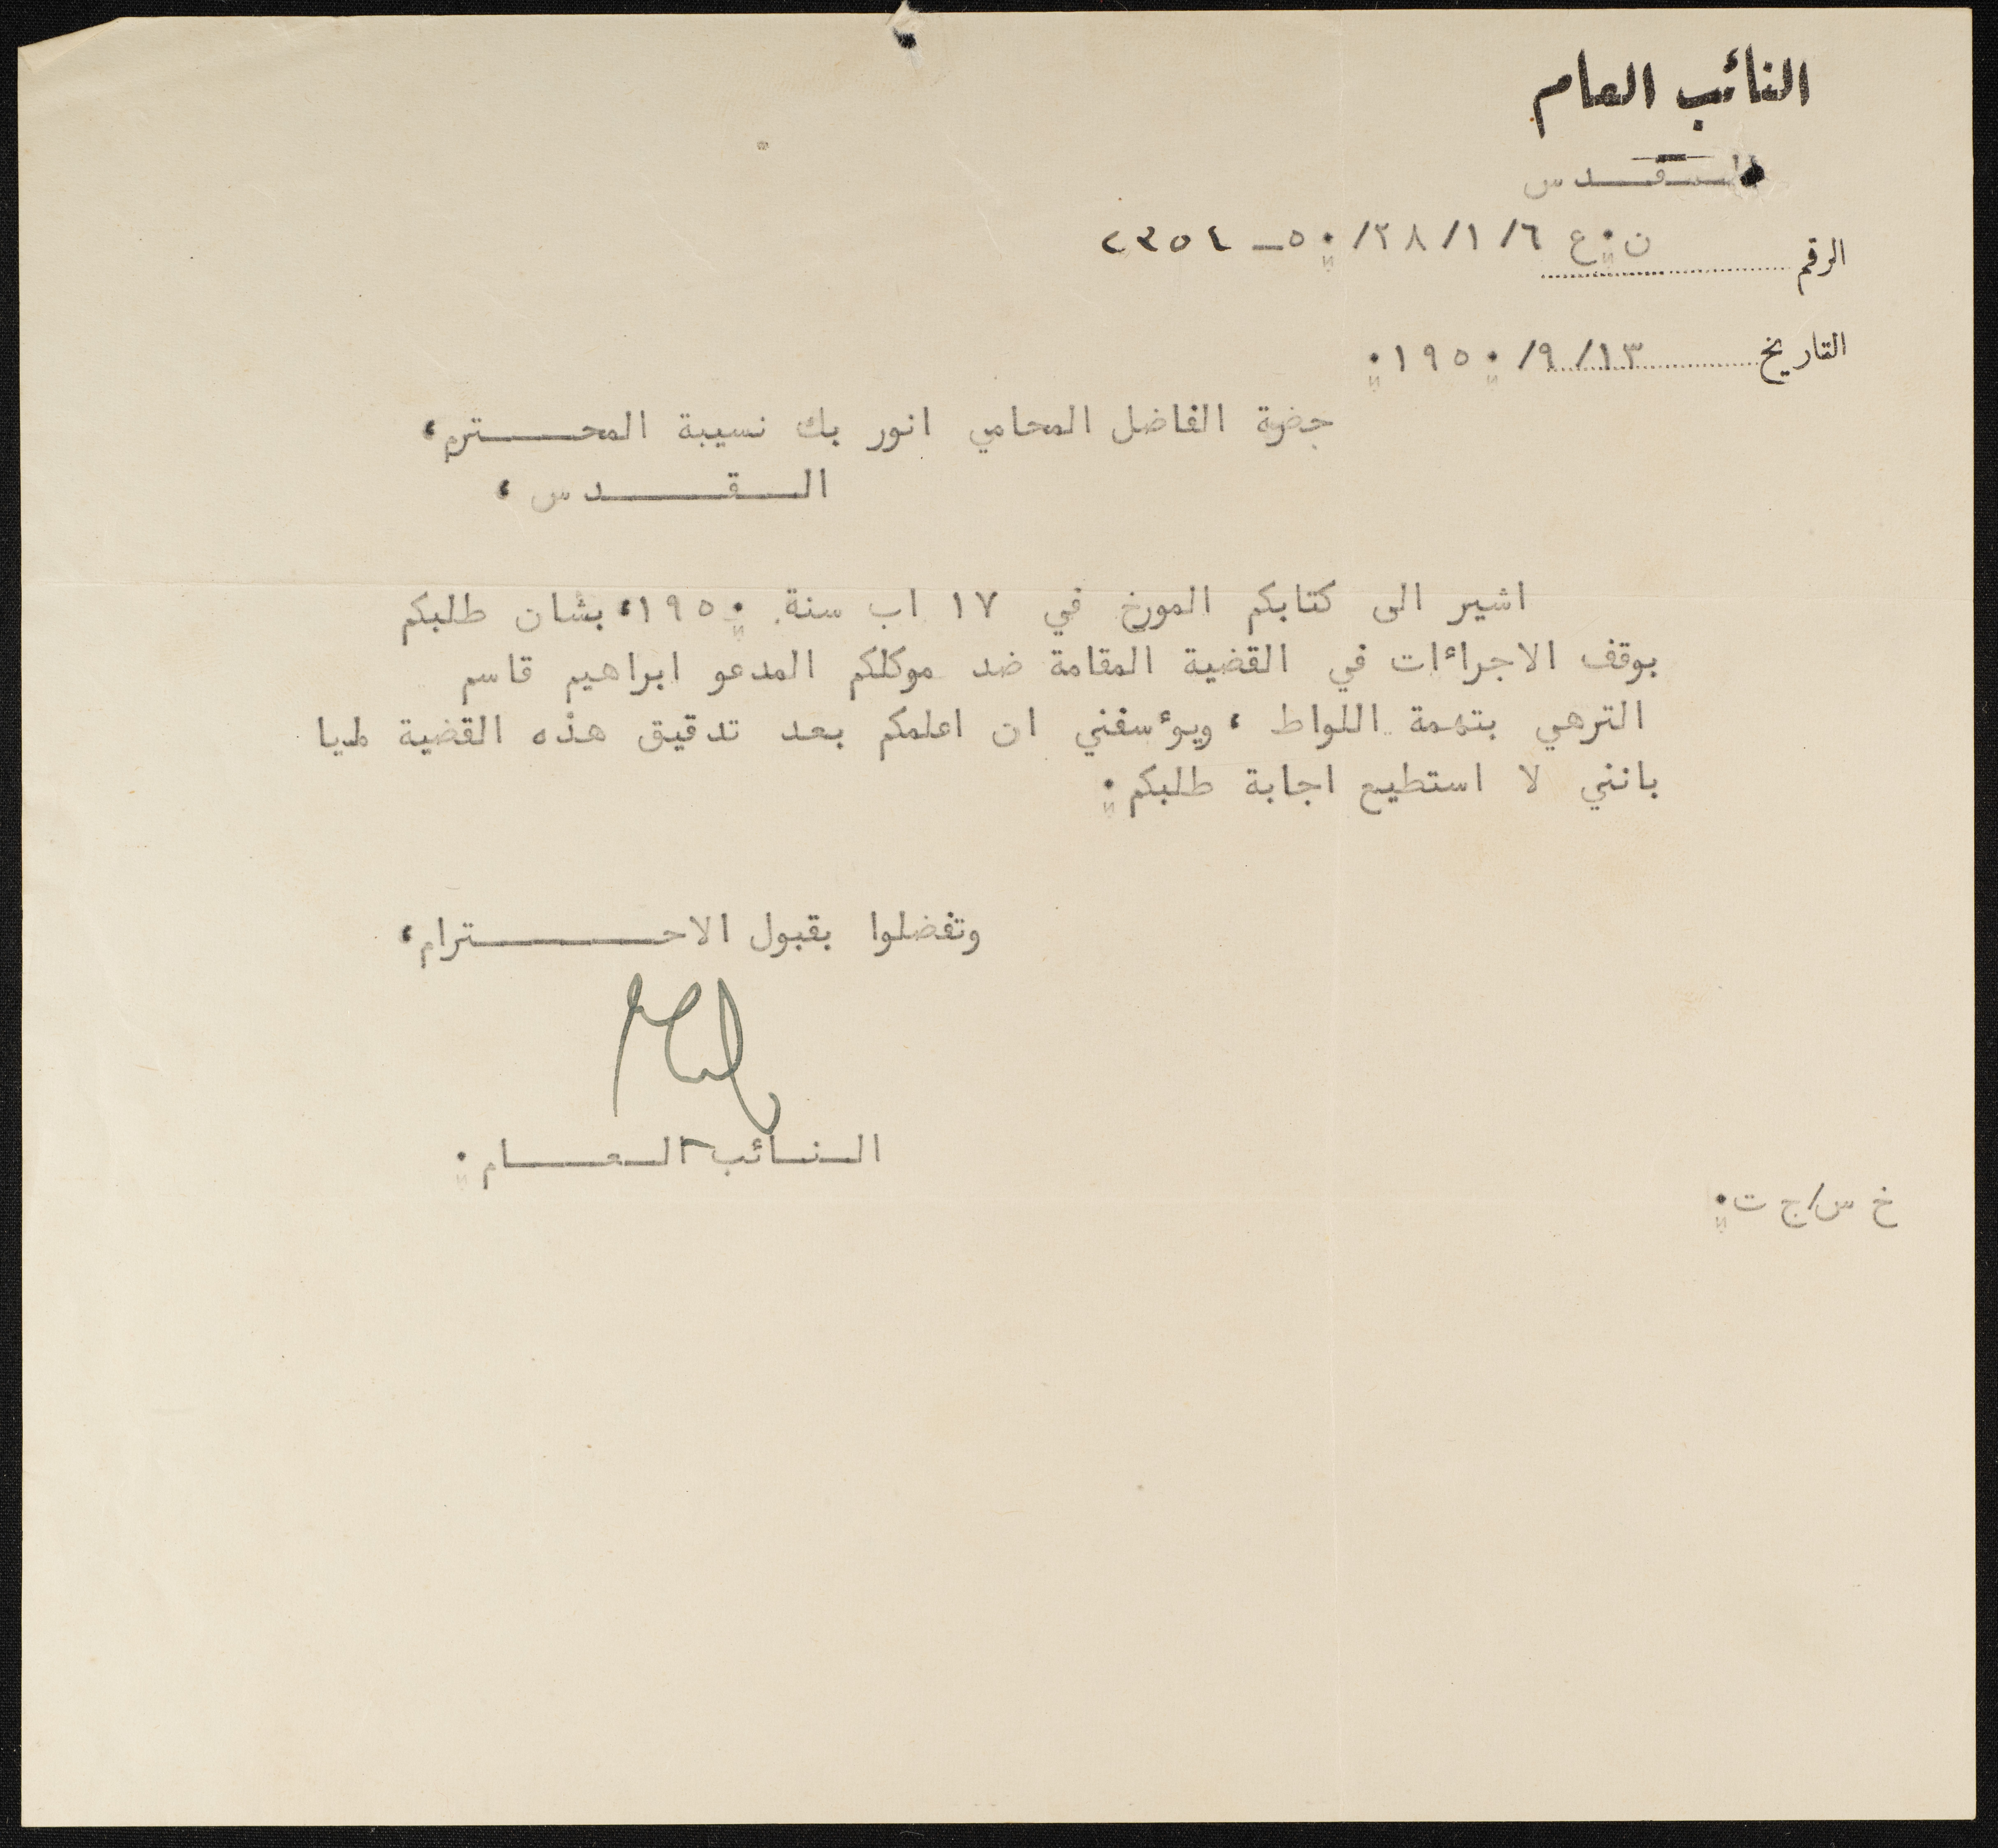 النائب العام
القدس
الرقم ن.ع ٦/١/٢٨/٥٠ــ ٢٣٥٤
التاريخ ١٣/٩/١٩٥٠.
حضرة الفاضل المحامي انور بك نسيبة المحـــــترم،
الـــقـــــدس،
اشير الى كتابكم المورخ في ١٧ اب سنة ١٩٥٠، بشان طلبكم
بوقف الاجراءات في القضية المقامة ضد موكلكم المدعو ابراهيم قاسم
الترهي بتهمة اللواط، ويؤسفني ان اعلمكم بعد تدقيق هذه القضية مليا
بانني لا استطيع اجابة طلبكم.
وتفضلوا بقبول الاحــــــــترام،
الــنــائب الــعــــام.
خ س/ج ت.